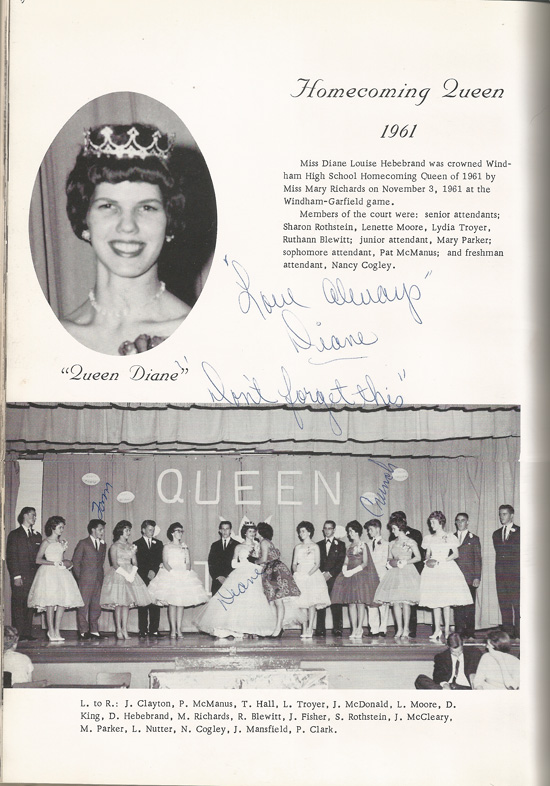 Homecoming Queen
1961
Miss Diane Louise Hebebrand was crowned Wind-
ham High School Homecoming Queen of 1961 by
Miss Mary Richards on November 3, 1961 at the
Windham-Garfield game.
Members of the court were: senior attendants;
Sharon Rothstein, Lenette Moore, Lydia Troyer,
Ruthann Blewitt; junior attendant, Mary Parker;
sophomore attendant, Pat McManus; and freshman
attendant, Nancy Cogley.
"Love Always"
Diane
"Queen Diane"
"Don't forget this"
QUEEN
Tom
Diane
L. to R.: J. Clayton, P. McManus, T. Hall, L. Troyer, J. McDonald, L. Moore, D.
King, D. Hebebrand, M. Richards, R. Blewitt, J. Fisher, S. Rothstein, J. McCleary,
M. Parker, L. Nutter, N. Cogley, J. Mansfield, P. Clark.